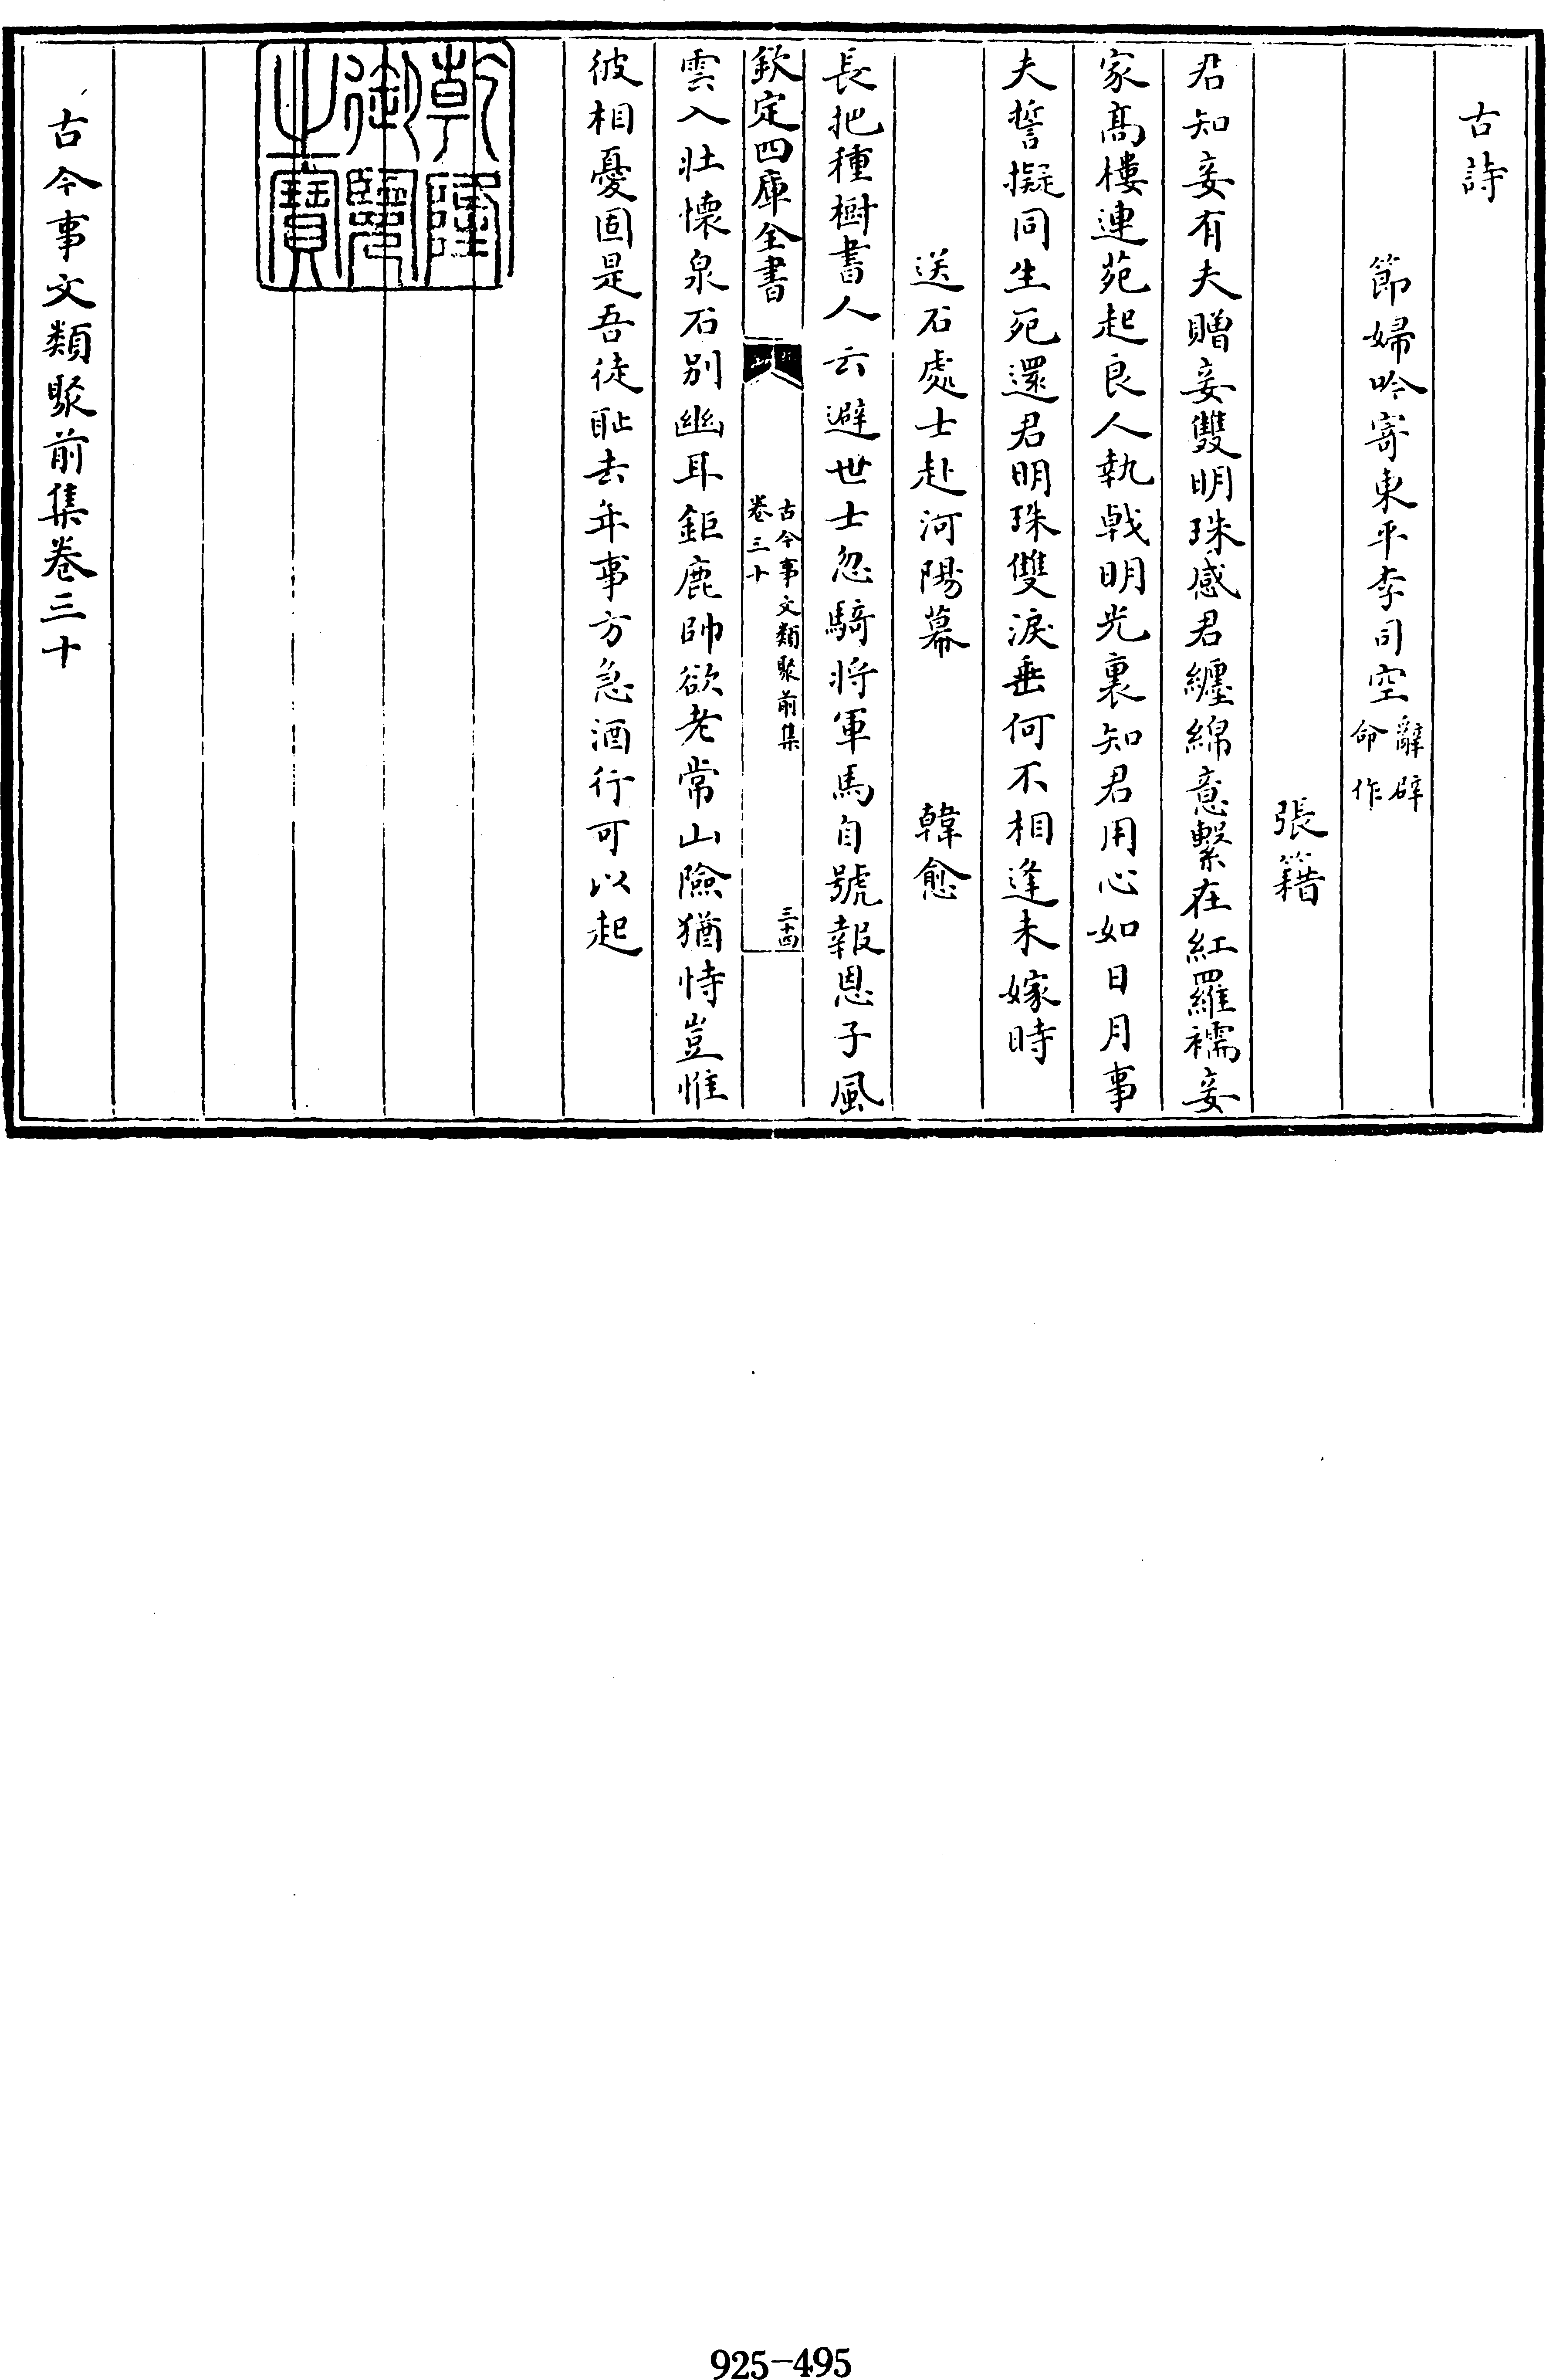 古詩
節婦吟寄東平李司空辭辟命作
張籍
君知妾有夫贈妾雙明珠感君纏綿意繫在紅羅襦妾
家髙樓連苑起良人執㦸明光裏知君用心如日月事
夫誓擬同生死還君明珠雙淚垂何不相逢未嫁時
送石處士赴河陽幕 韓愈
長把種樹書人云避世士忽騎将軍馬自號報恩子風
欽定四庫全書
古今事文類聚前集
卷三十
三十四
雲入壯懷泉石别幽耳鉅鹿帥欲老常山險猶恃豈惟
彼相憂固是吾徒恥去年事方急酒行可以起
乾隆御覽之寶
古今事文類聚前集卷三十
925-495